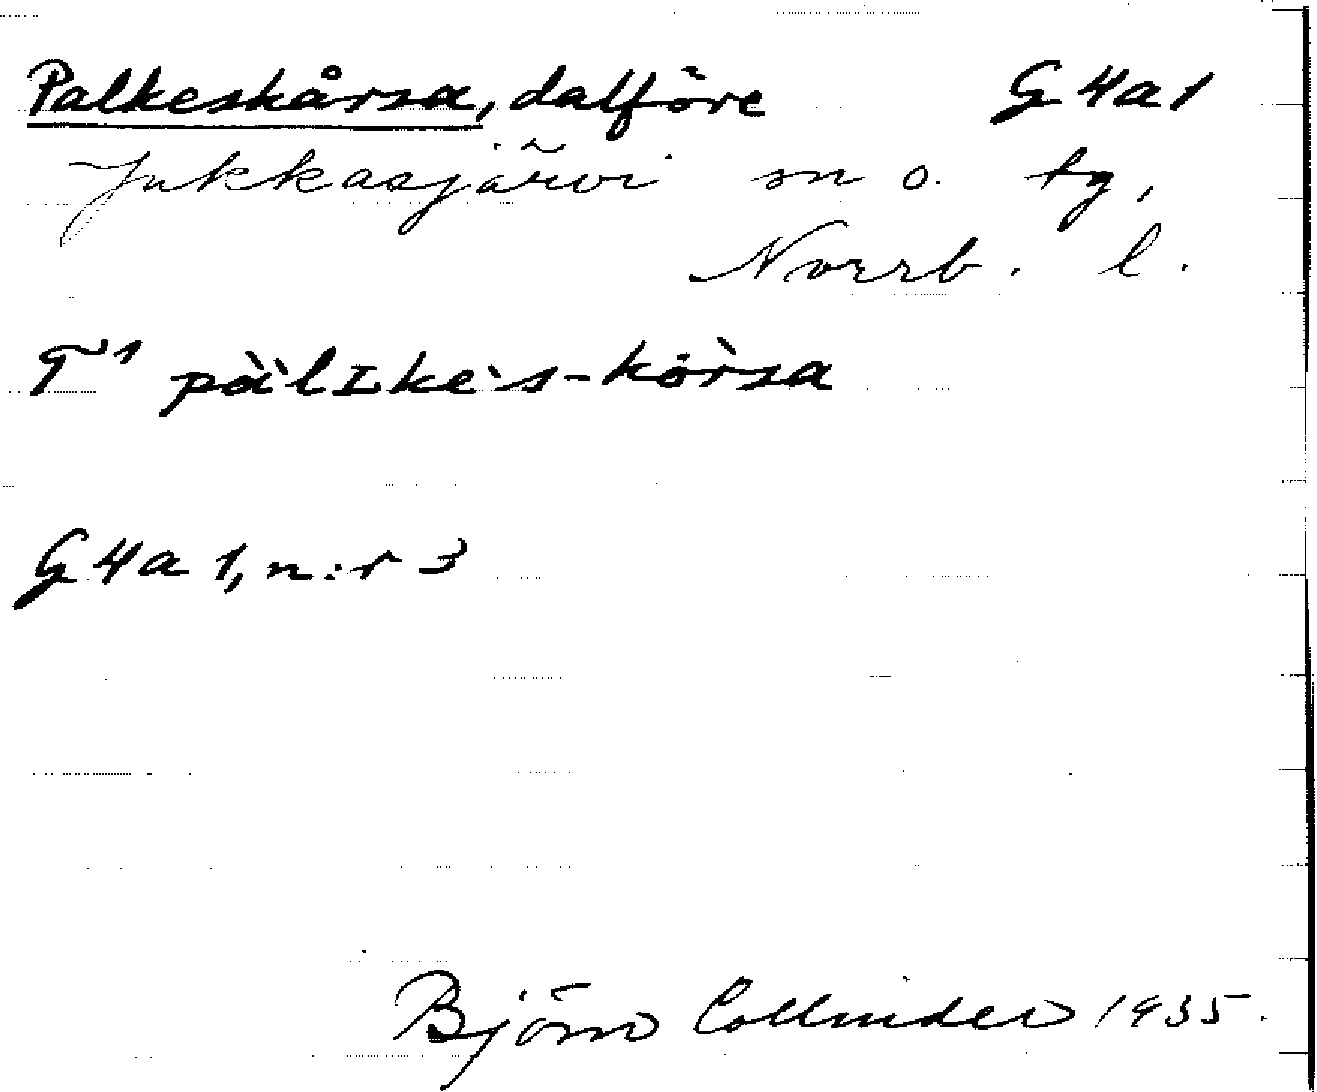 Palkeskårsa, dalföre G4a1
Jukkasjärvi sn o. tg,
Norrb. l.
T¹ pàlɪkès-kòrsa
G4a 1, n:r 3
Björn Collinder 1935.